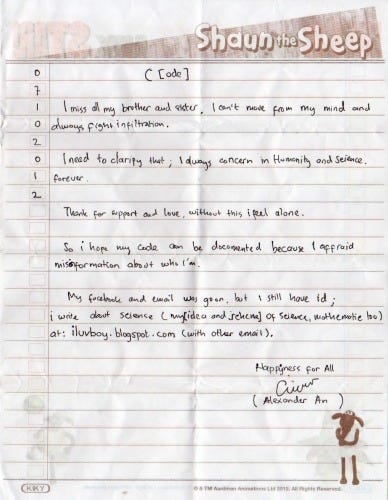 Shaun the Sheep
C [ode]
0
7
1
0
2
0
1
2
I miss all my brother and sister, I can't move from my mind and
always fight infiltration.
I need to clarify that ; I always concern in Humanity and Science.
forever.
Thank for support and love, without this i feel alone.
So i hope my code can be documented because I affraid
misinformation about who I'm.
My facebook and email was goon, but I still have id ;
i write about science (my idea and schema of science, mathematic too)
at : iluvboy.blogspot.com (with other email).
Happyness for All
( Alexander An )
KIKY
© & TM Aardman Animations Ltd 2012, All Rights Reserved.